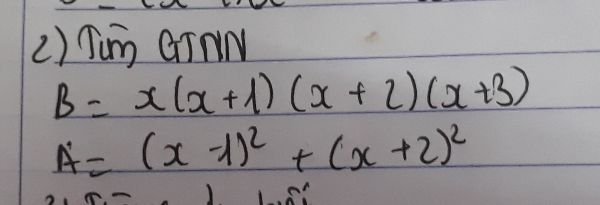 2) Tìm GTNN
B = x(x+1)(x+2)(x+3)
A = (x-1)² + (x+2)²